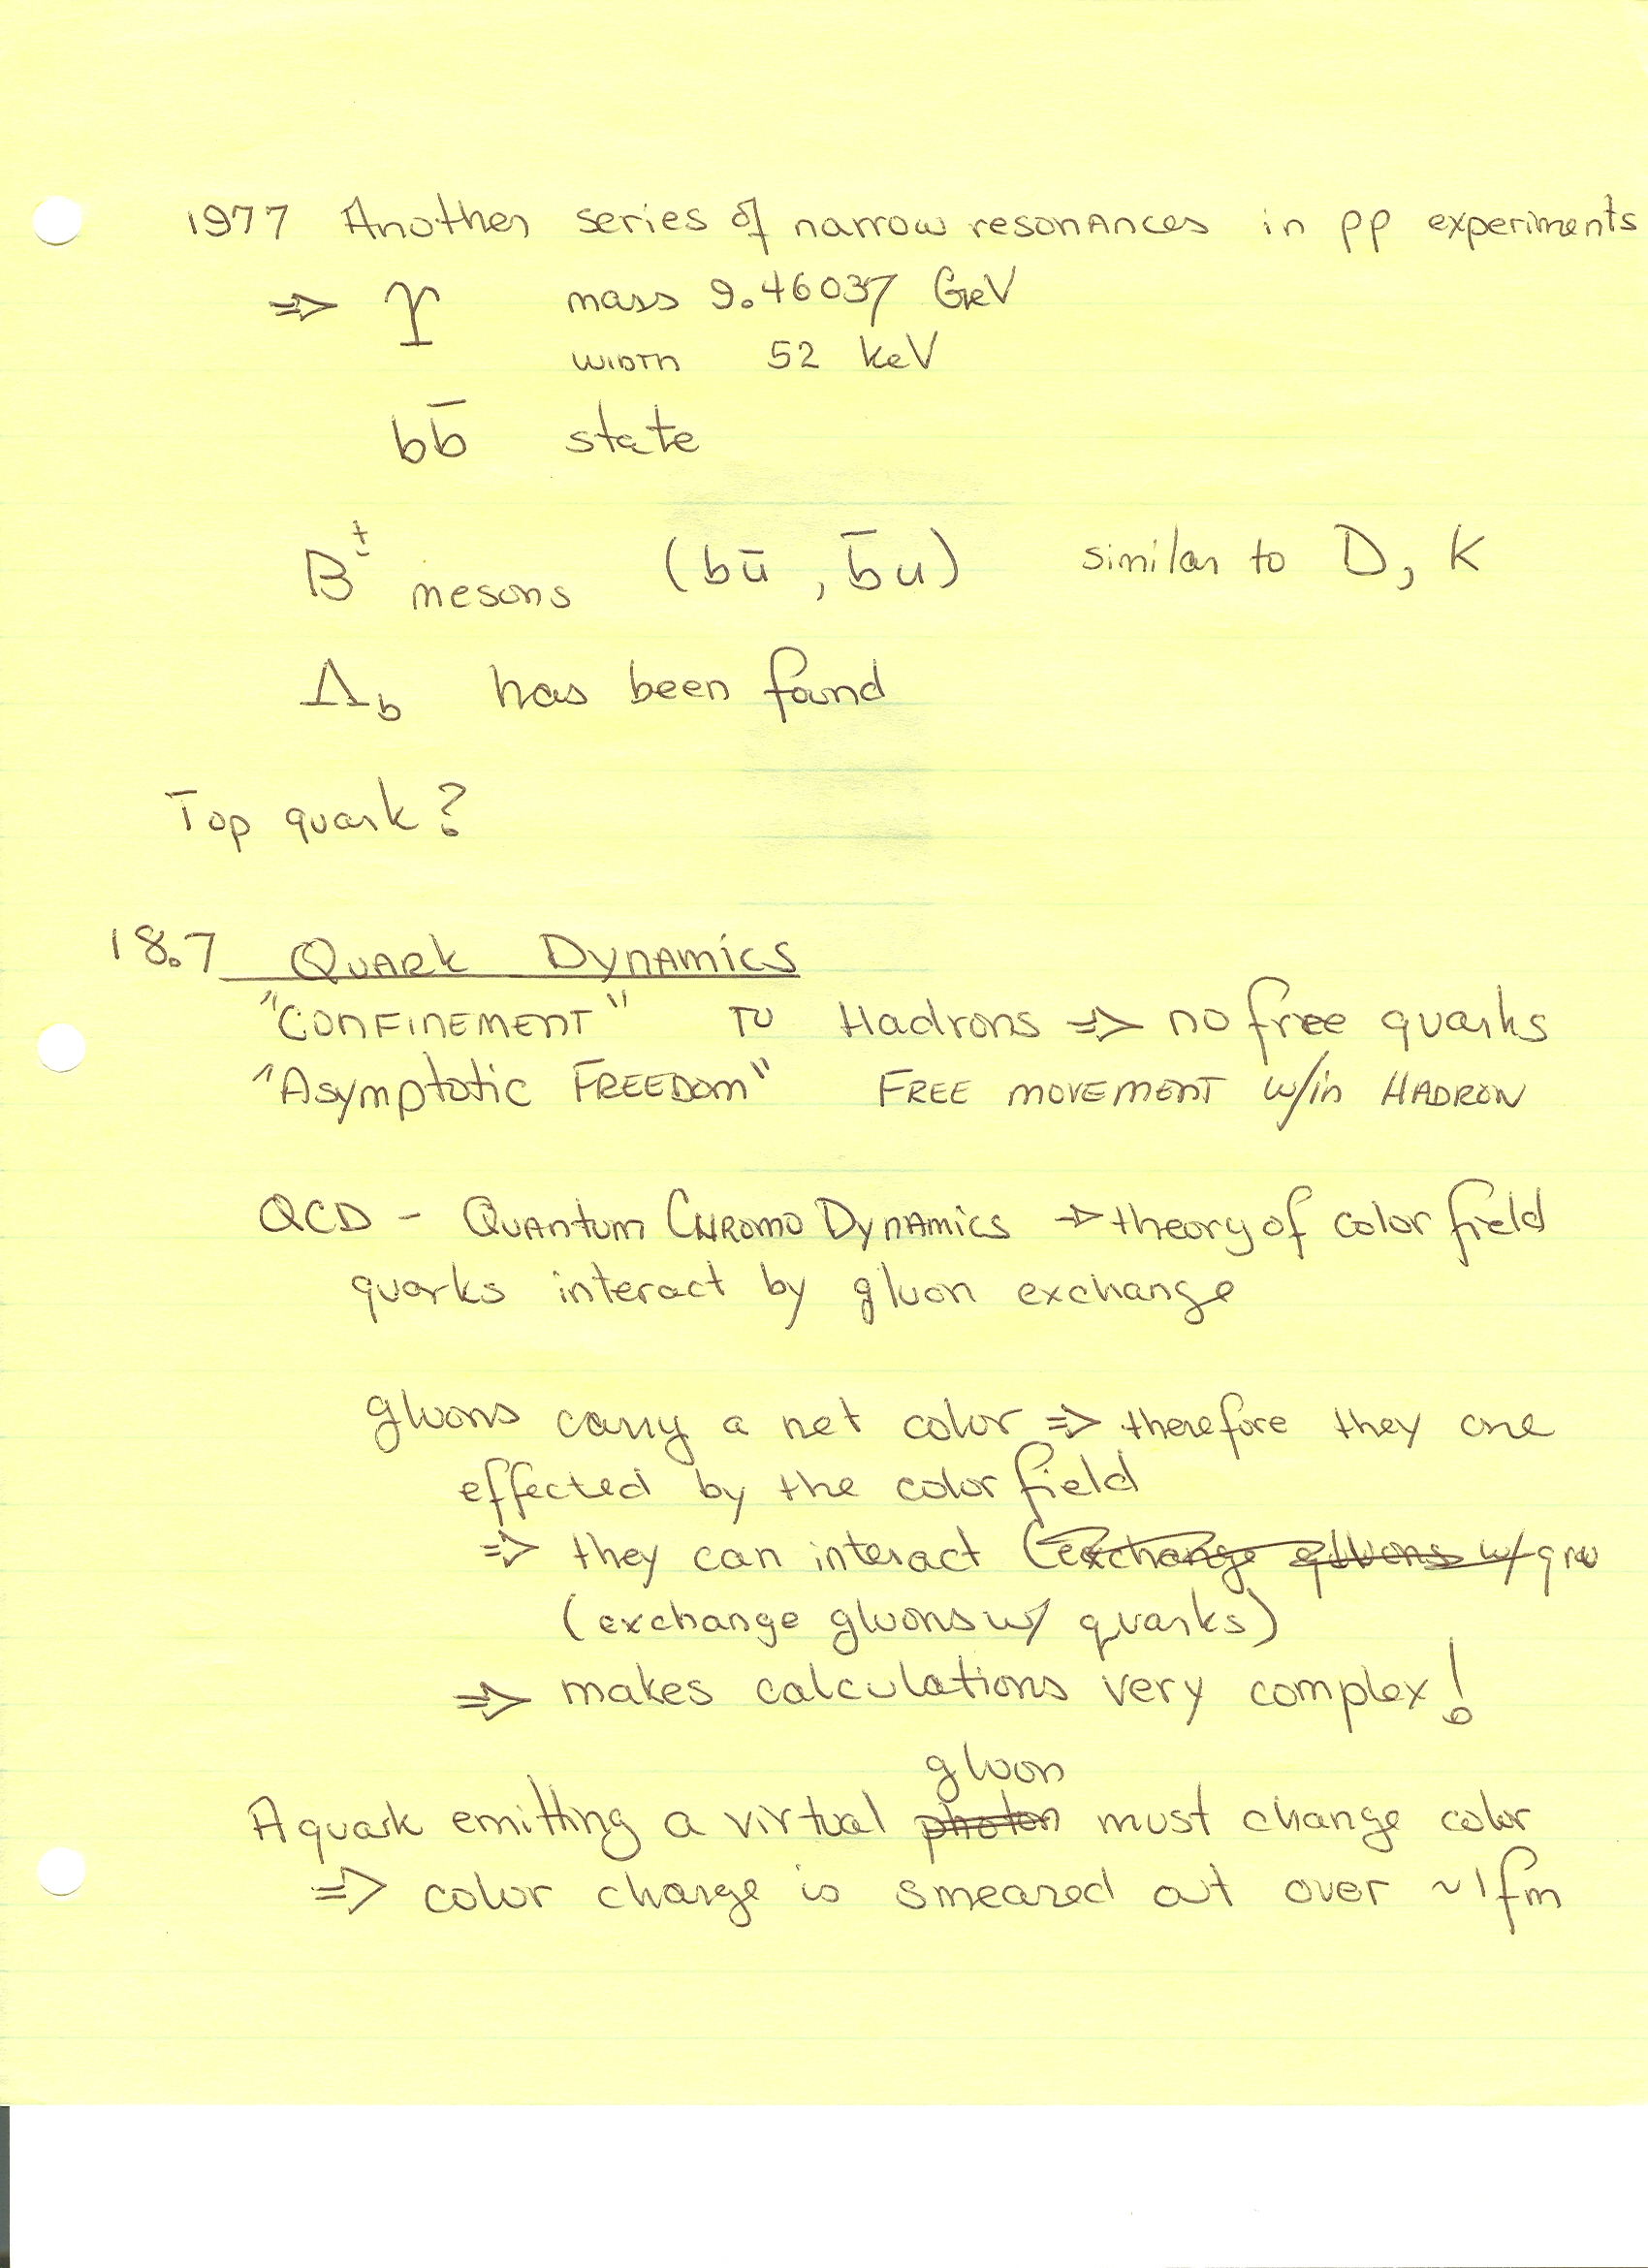 1977 Another series of narrow resonances in pp experiments
⇒ ϒ mass 9.46037 GeV
width 52 keV
bb̄ state
B± mesons (bū, b̄u) similar to D, K
Λb has been found
Top quark?
18.7 Quark Dynamics
"Confinement" to Hadrons ⇒ no free quarks
"Asymptotic Freedom" Free movement w/in Hadron
QCD – Quantum Chromo Dynamics → theory of color field
quarks interact by gluon exchange
gluons carry a net color ⇒ therefore they are
effected by the color field
⇒ they can interact (exchange gluons w/
(exchange gluons w/ quarks)
⇒ makes calculations very complex!
gluon
A quark emitting a virtual photon must change color
⇒ color charge is smeared out over ~1 fm